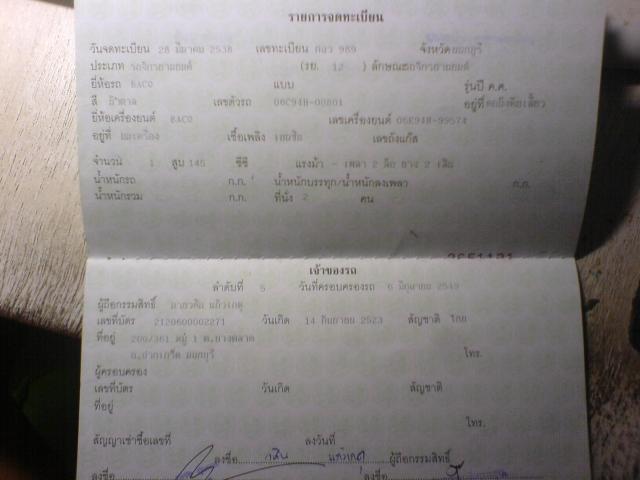 รายการจดทะเบียน
วันจดทะเบียน 28 มีนาคม 2538 เลขทะเบียน 989 จังหวัดนนทบุรี
ประเภท รถจักรยานยนต์ (รย. 12 ) ลักษณะรถจักรยานยนต์
ยี่ห้อรถ BACO แบบ รุ่นปี ค.ศ.
สี น้ำตาล เลขตัวรถ 06C94H-00801 อยู่ที่ คอถังคือเลี้ยว
ยี่ห้อเครื่องยนต์ BACO เลขเครื่องยนต์ 06E94H-99574
อยู่ที่ เชื้อเพลิง เบนซิน เลขถังแก๊ส
จำนวน 1 สูบ 145 ซีซี แรงม้า - เพลา 2 ล้อ ยาง 2 เส้น
น้ำหนักรถ ก.ก. น้ำหนักบรรทุก/น้ำหนักลงเพลา ก.ก.
น้ำหนักรวม ก.ก. ที่นั่ง 2 คน
เจ้าของรถ
ลำดับที่ 5 วันที่ครอบครองรถ 6 มิถุนายน 2549
ผู้ถือกรรมสิทธิ์ แก้วเกตุ
เลขที่บัตร 2120600002271 วันเกิด 14 กันยายน 2523 สัญชาติ ไทย
ที่อยู่ 200/361 หมู่ 1 ต.บางตลาด
อ.ปากเกร็ด นนทบุรี โทร.
ผู้ครอบครอง
เลขที่บัตร วันเกิด สัญชาติ
ที่อยู่
โทร.
สัญญาเช่าซื้อเลขที่ ลงวันที่
ลงชื่อ แก้วเกตุ ผู้ถือกรรมสิทธิ์
ลงชื่อ ลงชื่อ